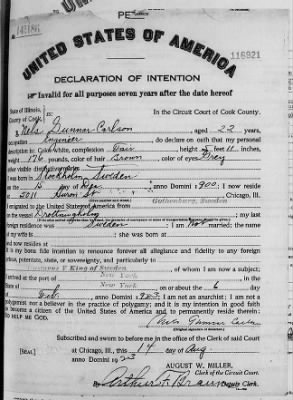 UNITED STATES OF AMERICA
116921
DECLARATION OF INTENTION
Invalid for all purposes seven years after the date hereof
State of Illinois,
County of Cook,
In the Circuit Court of Cook County.
Nels Gunnar Carlson , aged 22 years,
occupation Engineer , do declare on oath that my personal
description is: Color White, complexion Fair , height 5 feet 11 inches,
weight 176 pounds, color of hair Brown , color of eyes Grey
other visible distinctive marks
I was born in Stockholm, Sweden
on the 15 day of Dec , anno Domini 1900; I now reside
at 2011 St , Chicago, Ill.
I emigrated to the United States of America from Gothenburg, Sweden
on the vessel Drottningholm ; my last
foreign residence was Sweden ; I am Not married; the name
of my is ; she was born at
and now resides at
It is my bona fide intention to renounce forever all allegiance and fidelity to any foreign
prince, potentate, state, or sovereignty, and particularly to
Gustavus V King of Sweden , of whom I am now a subject;
I arrived at the port of New York , in the
State of New York on or about the 6 day
of Feb , anno Domini 1923; I am not an anarchist; I am not a
polygamist nor a believer in the practice of polygamy; and it is my intention in good faith
to become a citizen of the United States of America and to permanently reside therein:
SO HELP ME GOD.
Nels Gunnar Carlson
(Original signature of declarant)
Subscribed and sworn to before me in the office of the Clerk of said Court
[SEAL]
at Chicago, Ill., this 14 day of Aug.
anno Domini 1923
AUGUST W. MILLER,
Clerk of the Circuit Court.
By Arthur F. Braun Deputy Clerk.